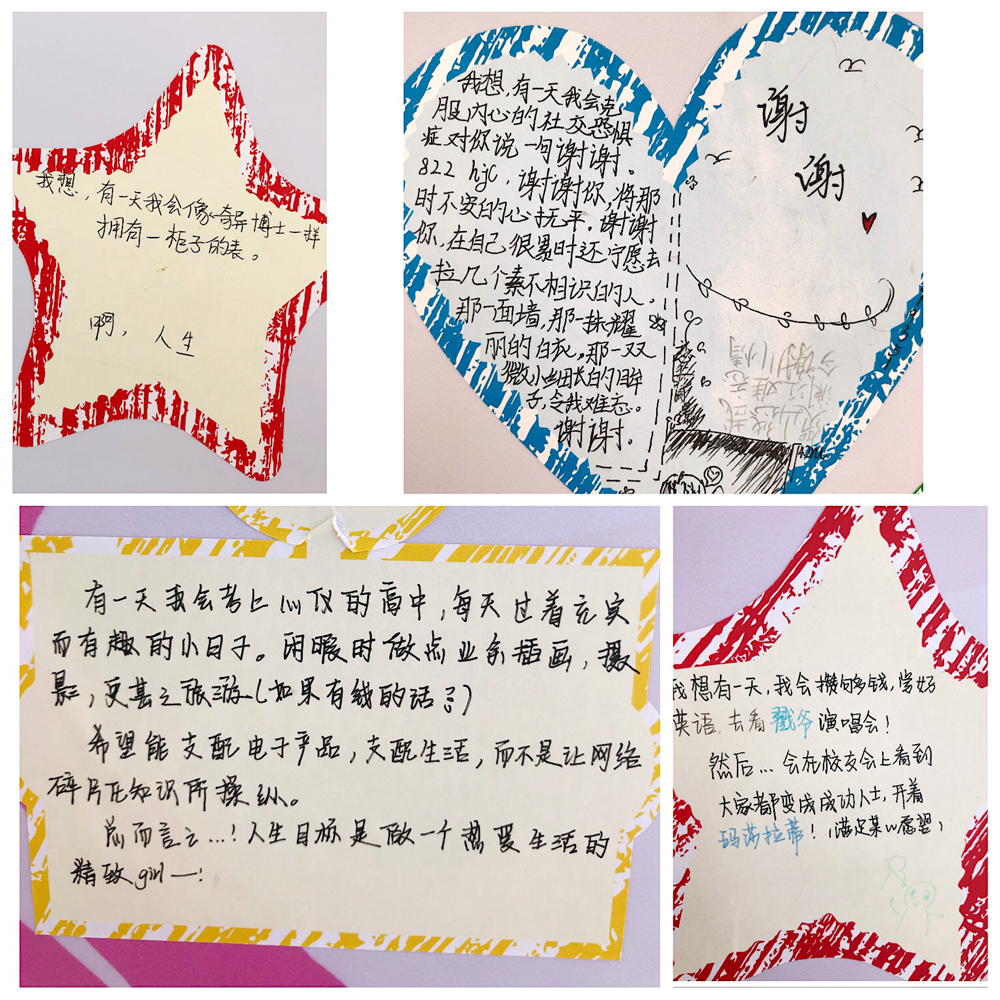 我想，有一天我会像奇异博士一样
拥有一柜子的表。
啊，人生
我想，有一天我会克
服内心的社交恐惧
症对你说一句谢谢。
822 hjc，谢谢你，将那
时不安的心抚平。谢谢
你，在自己很累时还宁愿去
拉几个素不相识的人。
那一面墙，那一抹耀
丽的白衣，那一双
微小细长的眸
子，令我难忘。
谢谢。
谢
谢
有一天我会考上心仪的高中，每天过着充实
而有趣的小日子。闲暇时做点业余插画，摄
影，更甚之旅游（如果有钱的话）
希望能支配电子产品，支配生活，而不是让网络
碎片化知识所操纵。
总而言之...！人生目标是做一个热爱生活的
精致girl—！
我想有一天，我会攒够多钱，学好
英语，去看戳爷演唱会！
然后...会在校友会上看到
大家都变成成功人士，开着
玛莎拉蒂！（满足某w愿望）